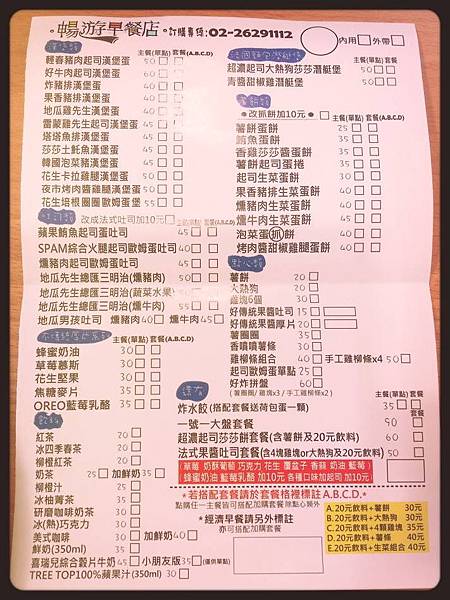 暢游早餐店 •訂購專線:02-26291112
內用 外帶
漢堡類 主餐(單點) 套餐(A.B.C.D)
輕春豬肉起司漢堡蛋 50
好生肉起司漢堡蛋 60
炸豬排漢堡蛋 40
果香豬排漢堡蛋 40
地瓜雞先生漢堡蛋 50
雷蘭雞先生起司漢堡蛋
塔塔魚排漢堡蛋
莎莎土魠魚漢堡蛋
韓國泡菜豬漢堡蛋
花生卡拉雞腿漢堡蛋 50
夜市烤肉醬雞腿漢堡蛋 50
花生培根圈圈歐姆蛋堡 55
吐司類 改成法式吐司加10元 主餐(單點) 套餐(A.B.C.D)
蘋果鮪魚起司蛋吐司 45
SPAM綜合火腿起司歐姆蛋吐司 45
燻豬起司歐姆蛋吐司
地瓜先生總匯三明治(燻豬肉) 50
地瓜先生總匯三明治(蔬菜水果)
地瓜先生總匯三明治(燻牛肉) 55
地瓜男孩吐司 燻豬肉40 燻牛肉45
主餐(單點) 套餐(A.B.C.D)
蜂蜜奶油 30
草莓慕斯 30
花生堅果 30
焦糖麥片 35
OREO藍莓乳酪 35
飲料
紅茶 20
冰四季春茶 20
柳橙紅茶 30
奶茶 25 加鮮奶35
柳橙汁 25
冰柚菁茶 35
研磨咖啡奶茶 30
冰(熱)巧克力 30
美式咖啡 30 加鮮奶40
鮮奶(350ml) 35
喜瑞兒綜合穀片牛奶 45 小朋友版35(僅供單點)
TREE TOP100%蘋果汁(350ml) 30
主餐(單點) 套餐(A.B.C.D)
超濃起司大熱狗莎莎潛艇堡 50
青醬甜椒雞潛艇堡 50
蛋餅類
•改抓餅加10元• 主餐(單點) 套餐(A.B.C.D)
薯餅蛋餅 25
鮪魚蛋餅 35
香雞莎莎醬蛋餅 35
薯餅起司蛋捲 35
起司生菜蛋餅 30
果香豬排生菜蛋餅 40
燻豬肉生菜蛋餅 40
燻牛肉生菜蛋餅 45
泡菜蛋抓餅 40
烤肉醬甜椒雞腿蛋餅 40
點心類
薯餅 20
大熱狗 20
雞塊6個 30
好傳統果醬吐司 15
好傳統果醬厚片 20
薯圈圈 35
香噴噴薯條 30
雞柳條組合 40 手工雞柳條x4 50
起司歐姆蛋單點 25
好炸拼盤 60
(薯圈圈/雞塊x3/手工雞柳條x2)
還有 主餐(單點) 套餐(A.B.C.D)
炸水餃(搭配套餐送荷包蛋一顆) 35
套餐
一號一大盤套餐 90
超濃起司莎莎餅套餐(含薯餅及20元飲料) 60
法式果醬吐司套餐(含4塊雞塊or大熱狗及20元飲料) 60
(草莓 奶酥葡萄 巧克力 花生 覆盆子 香蒜 奶油 藍莓)
蜂蜜奶油 藍莓乳酪 加10元 各種口味加起司 加10元
*若搭配套餐請於套餐格裡標註 A.B.C.D.*
點購任一主餐皆可搭配加購套餐 除點心類外
*經濟早餐請另外標註
亦可搭配加購套餐
A.20元飲料+薯餅 30元
B.20元飲料+大熱狗 30元
C.20元飲料+4顆雞塊 35元
D.20元飲料+薯條 40元
E.20元飲料+生菜組合 40元